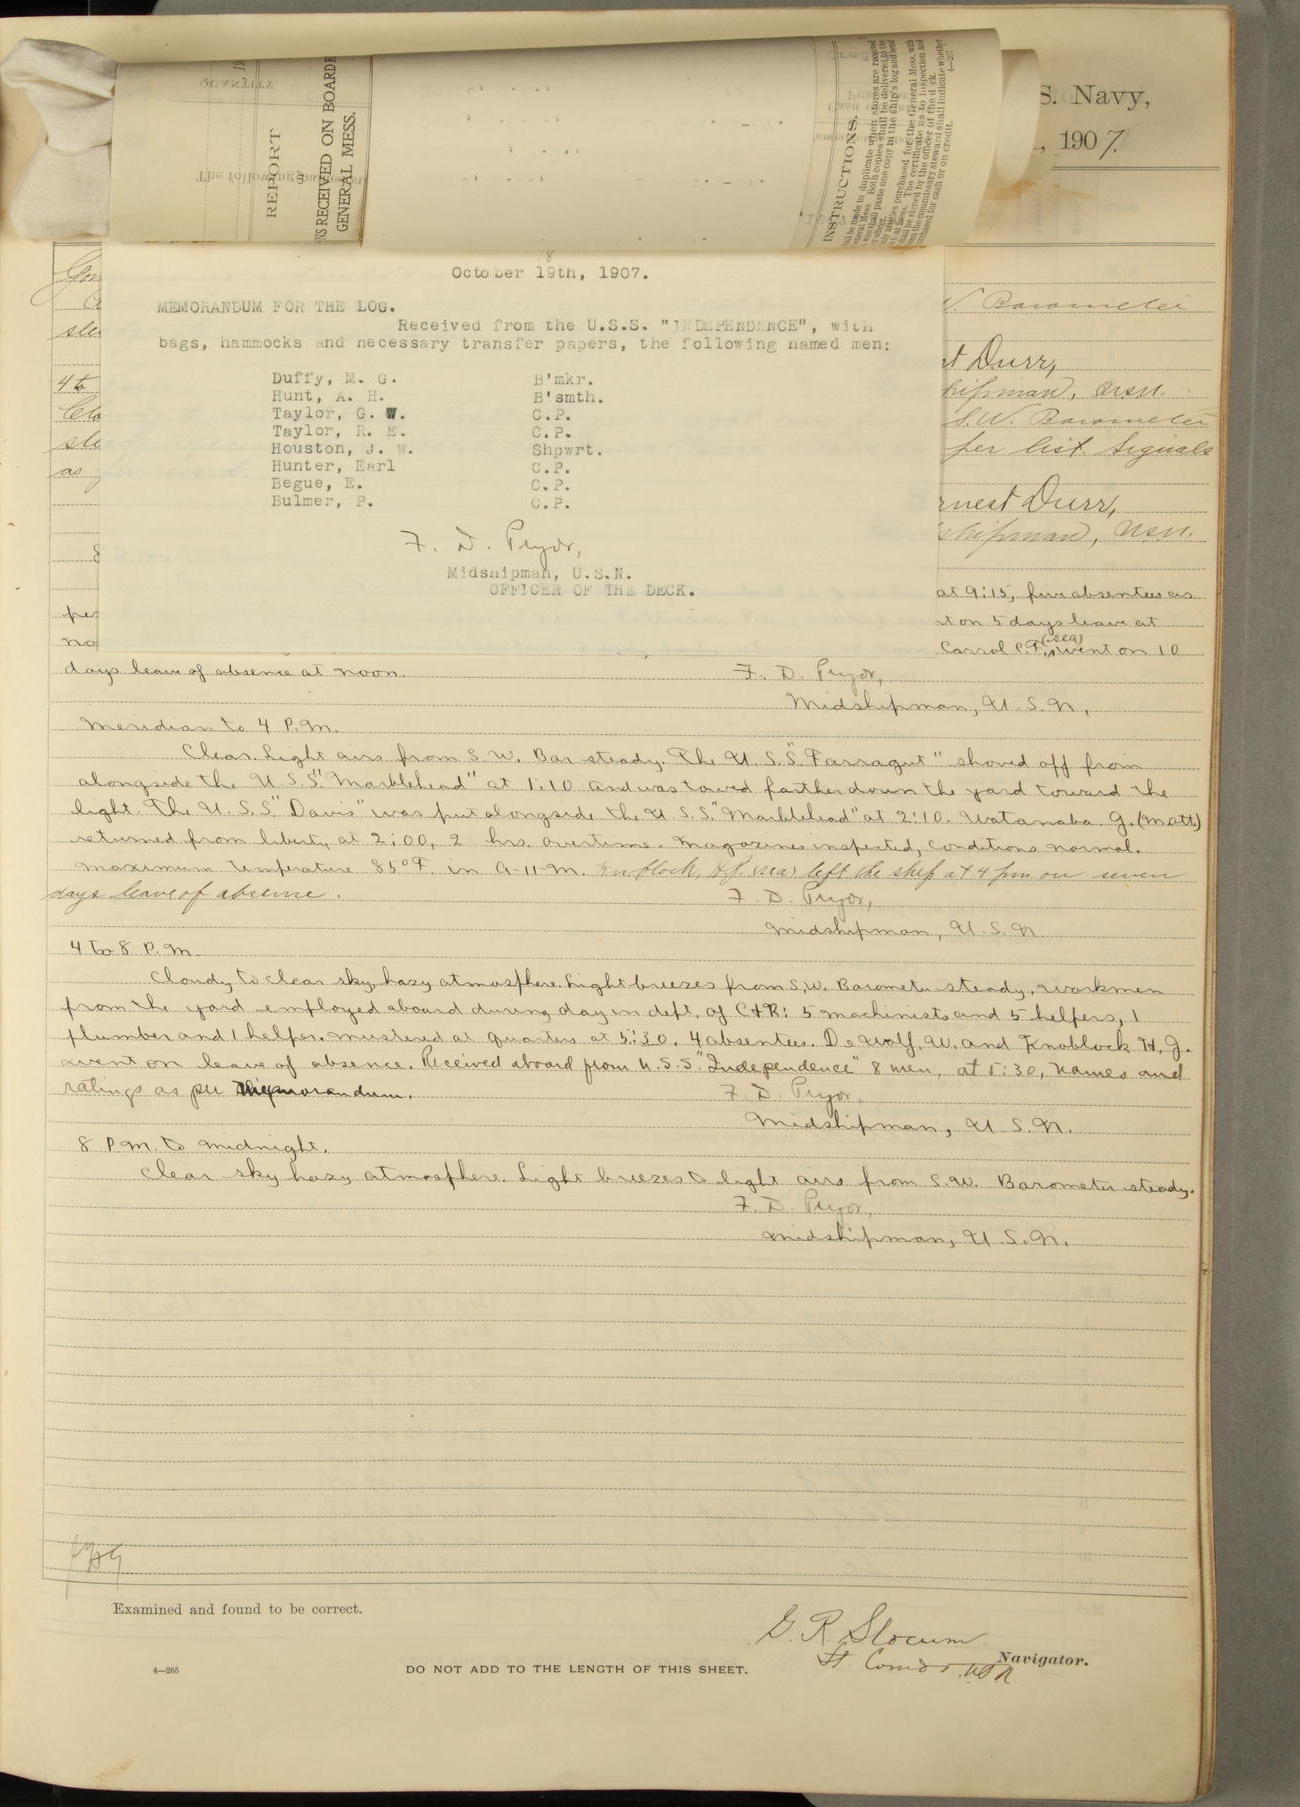 S. Navy,
, 1907.
REPORT
NS RECEIVED ON BOARD
GENERAL MESS.
INSTRUCTIONS.
18
October 19th, 1907.
MEMORANDUM FOR THE LOG.
Received from the U.S.S. "INDEPENDENCE", with
bags, hammocks and necessary transfer papers, the following named men:
Duffy, M. G. B'mkr.
Hunt, A. H. B'smth.
Taylor, G. W. C.P.
Taylor, R. E. C.P.
Houston, J. W. Shpwrt.
Hunter, Earl C.P.
Begue, E. C.P.
Bulmer, P. C.P.
F. D. Pryor,
Midshipman, U.S.N.
OFFICER OF THE DECK.
W. Barometer
st Durr,
shipman, USN.
4 to
S.W. Barometer
per list. Signals
as
rnest Durr,
shipman, USN.
8
at 9:15, five absentees as
per
nt on 5 days leave at
no
Carrol C.F. (sea) went on 10
days leave of absence at noon.
F. D. Pryor,
Midshipman, U.S.N.,
Meridian to 4 P.M.
Clear. Light airs from S.W. Bar steady. The U.S.S. "Farragut" shoved off from
alongside the U.S.S. "Marblehead" at 1:10 and was towed farther down the yard toward the
light. The U.S.S. "Davis" was put alongside the U.S.S. "Marblehead" at 2:10. Watanaba G. (Matt.)
returned from liberty at 2:00, 2 hrs. overtime. Magazines inspected, conditions normal.
Maximum temperature 85°F. in A-11-M. Knoblock, H.J. (sea) left the ship at 4 pm on seven
days leave of absence.
F. D. Pryor,
Midshipman, U.S.N.
4 to 8 P.M.
Cloudy to clear sky, hazy atmosphere. Light breezes from S.W. Barometer steady. Workmen
from the yard employed aboard during day in dept. of C&R: 5 machinists and 5 helpers, 1
plumber and 1 helper. Mustered at quarters at 5:30, 4 absentees. De Wolf, W. and Knoblock H.J.
went on leave of absence. Received aboard from U.S.S. "Independence" 8 men, at 5:30, names and
ratings as per memorandum.
F. D. Pryor,
Midshipman, U.S.N.
8 P.M. to midnight.
Clear sky hazy atmosphere. Light breezes to light airs from S.W. Barometer steady.
F. D. Pryor,
Midshipman, U.S.N.
Examined and found to be correct.
G. R. Slocum
Lt. Comdr. USN
Navigator.
4—265
DO NOT ADD TO THE LENGTH OF THIS SHEET.